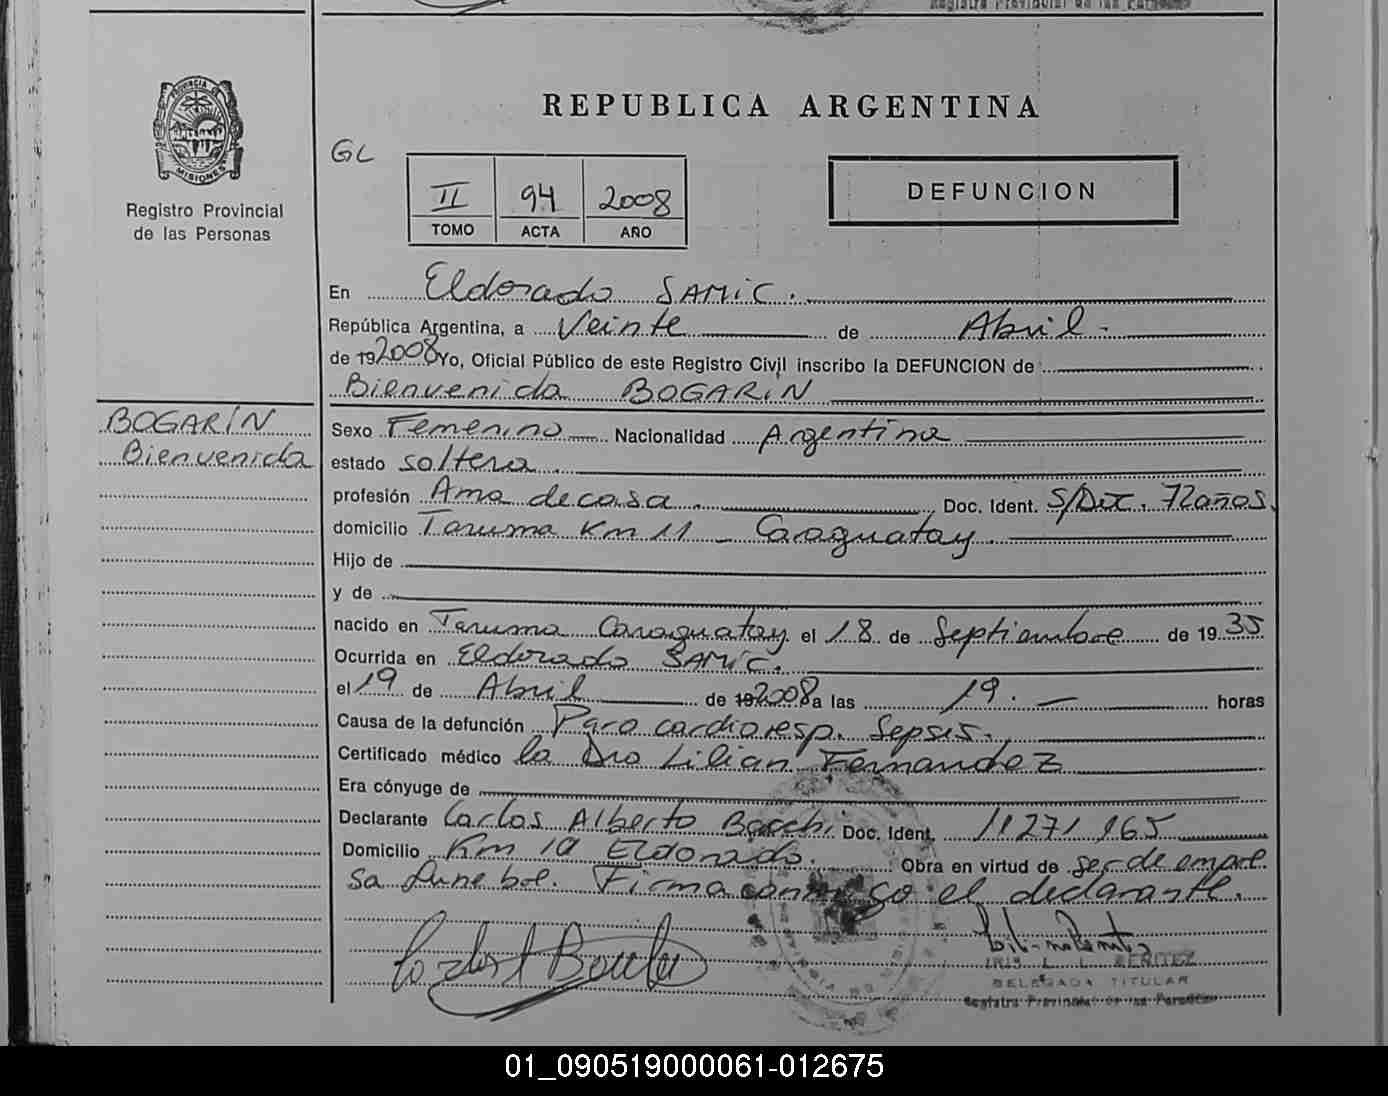 Registro Provincial de las Personas
PROVINCIA DE
MISIONES
Registro Provincial
de las Personas
REPUBLICA ARGENTINA
GL
II 94 2008
TOMO ACTA AÑO
DEFUNCION
En Eldorado SAMIC.
República Argentina, a Veinte de Abril
de 19 2008 Yo, Oficial Público de este Registro Civil inscribo la DEFUNCION de
Bienvenida BOGARIN
BOGARÍN
Bienvenida
Sexo Femenino Nacionalidad Argentina
estado soltera
profesión Ama de casa. Doc. Ident. S/Doc. 72 años.
domicilio Taruma Km 11 - Caraguatay.
Hijo de
y de
nacido en Taruma Caraguatay el 18 de Septiembre de 19 35
Ocurrida en Eldorado SAMIC.
el 19 de Abril de 19 2008 a las 19. — horas
Causa de la defunción Paro cardioresp. Sepsis.
Certificado médico la Dra Lilian Fernandez
Era cónyuge de
Declarante Carlos Alberto Doc. Ident. 11271165
Domicilio Km 10 Eldorado. Obra en virtud de ser de empre
sa funebre. Firma conmigo el declarante.
IRIS L. L. BENITEZ
DELEGADA TITULAR
Registro Provincial de las Personas
01_090519000061-012675